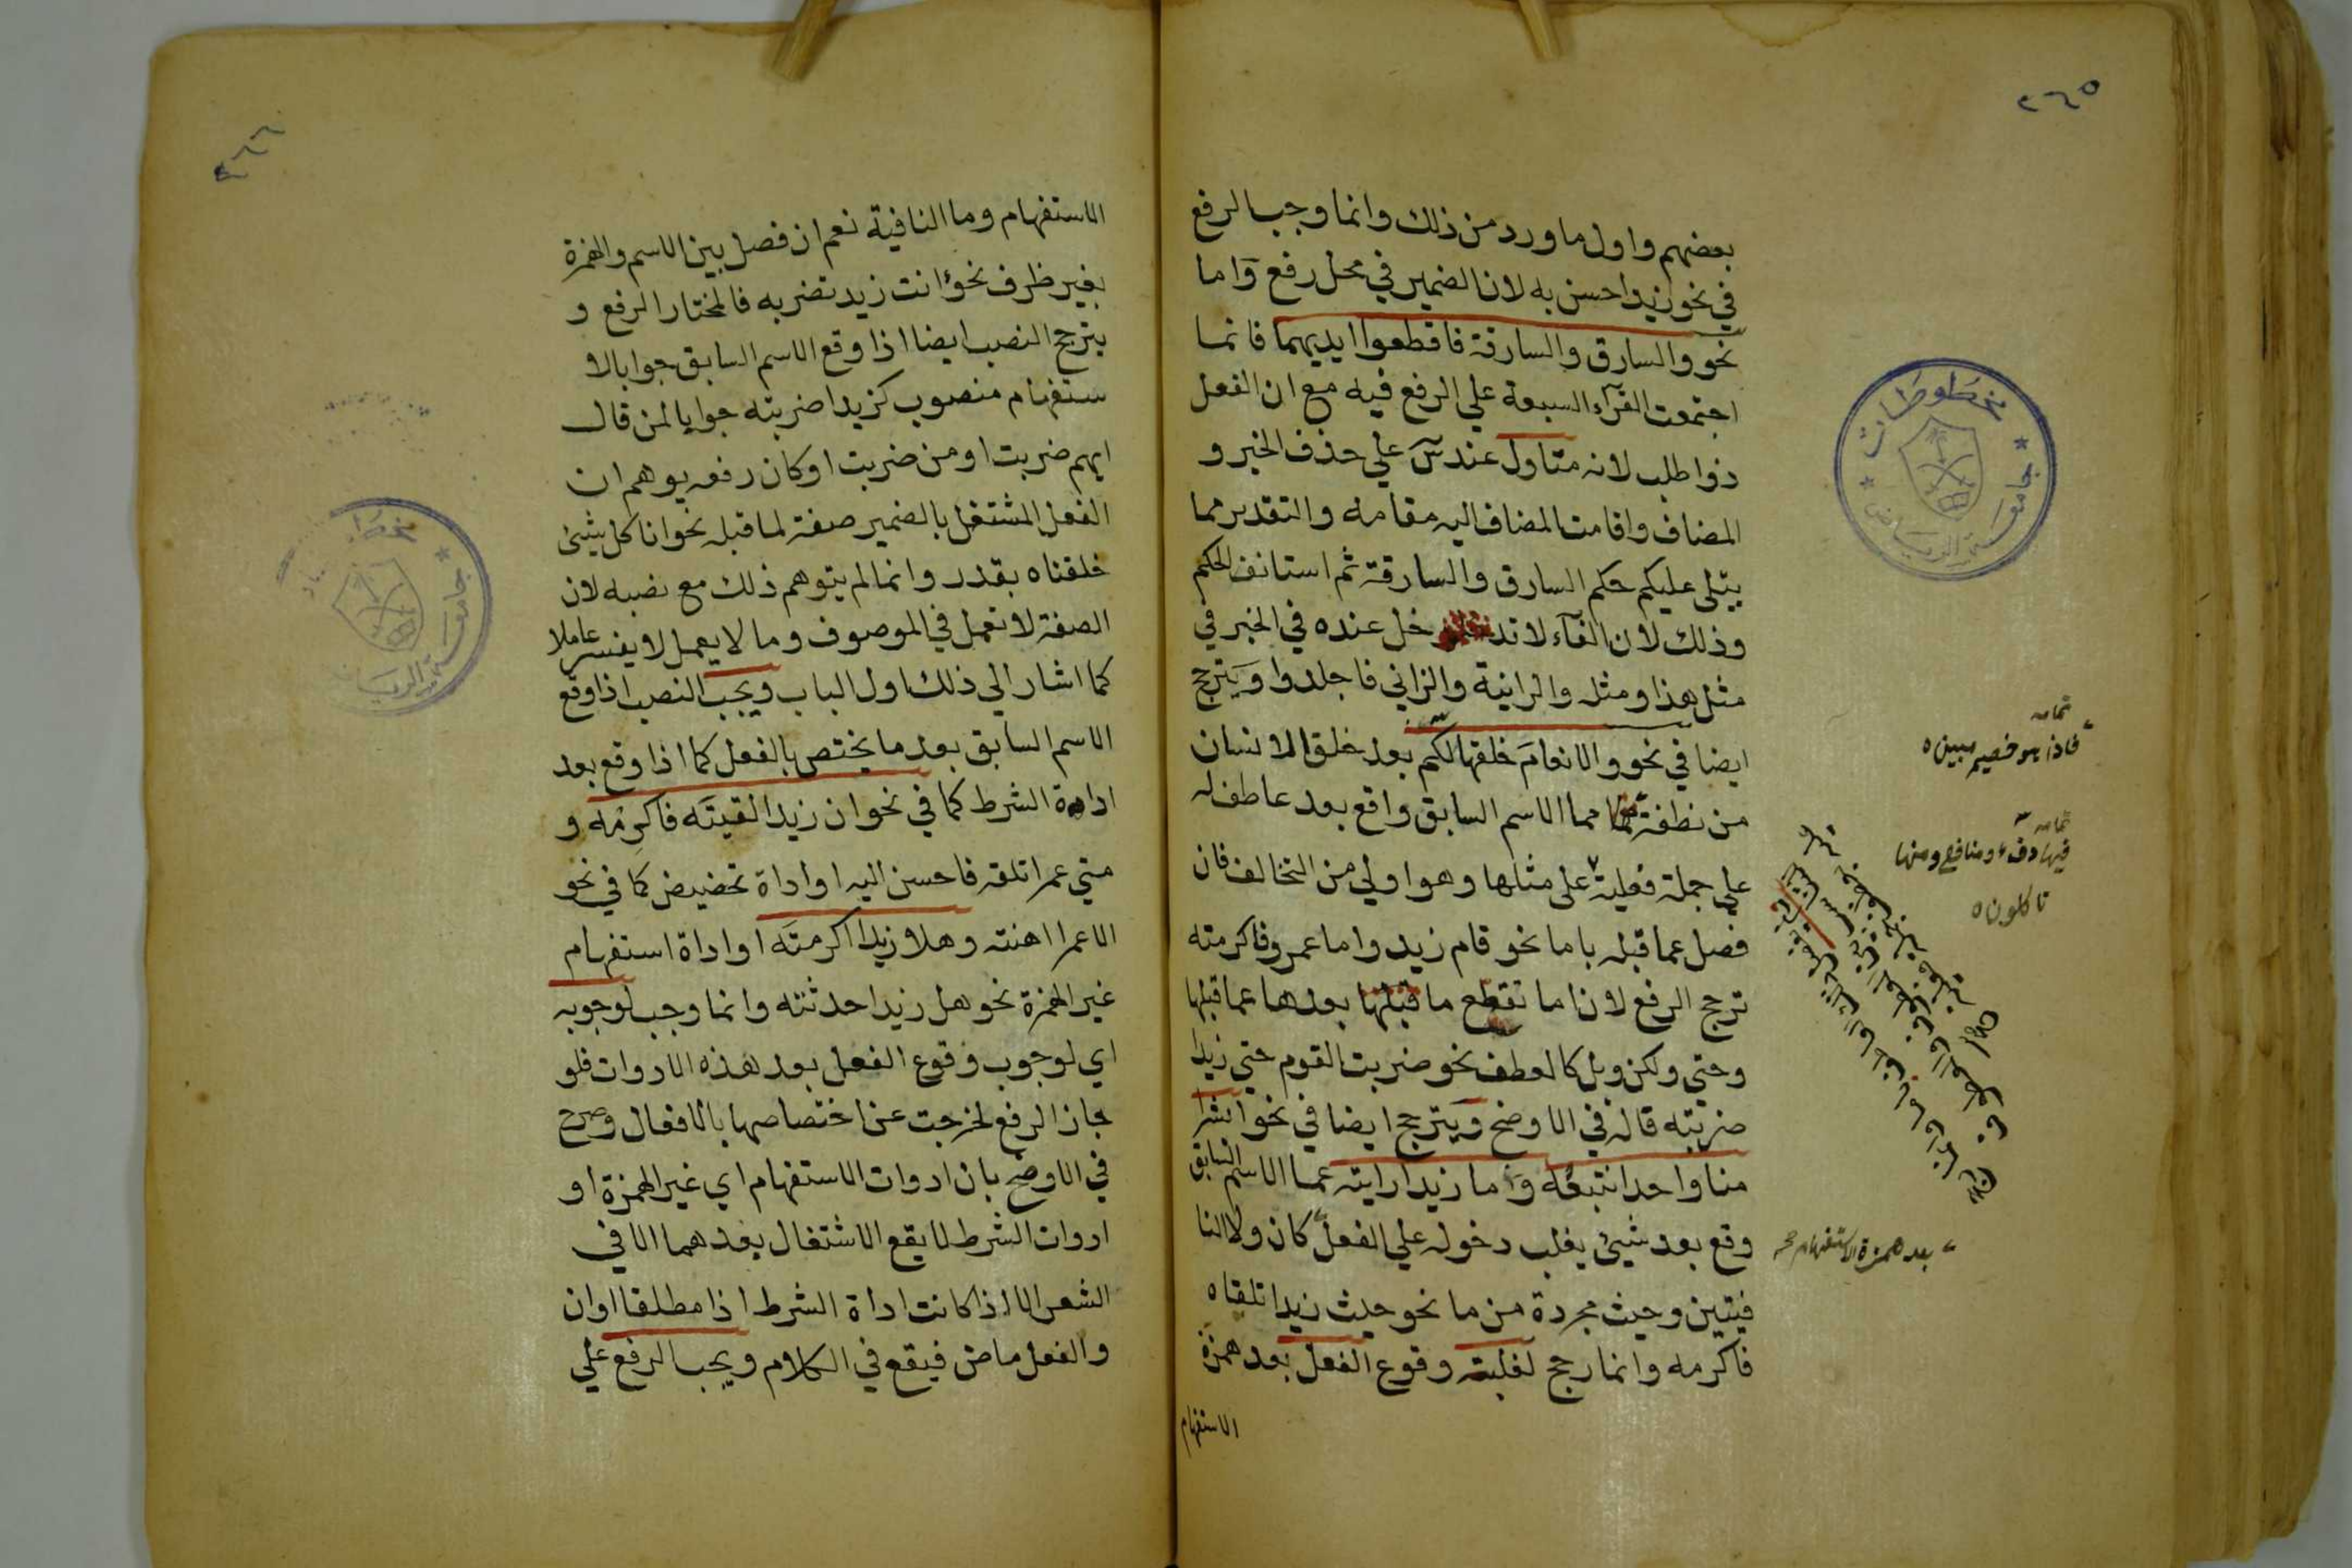 ٢٦٥
بعضهم واول ما ورد من ذلك وانما وجب الرفع
في نحو زيد احسن به لان الضمير في محل رفع واما
نحو والسارق والسارقة فاقطعوا ايديهما فانما
اجتمعت القرآء السبعة علي الرفع فيه مع ان الفعل
ذو اطلب لانه متاول عند س علي حذف الخبر و
المضاف واقامت المضاف اليه مقامه والتقدير مما
يتلى عليكم حكم السارق والسارقة ثم استانف الحكم
وذلك لان الفآء لا تدخل عنده في الخبر في
مثل هذا ومثله والزانية والزاني فاجلدوا ويترجح
ايضا في نحو والانعام خلقها لكم بعد خلق الانسان
من نطفة مما الاسم السابق واقع بعد عاطف له
علي جملة فعلية على مثلها وهو اولي من التخالف فان
فصل عما قبله باما نحو قام زيد واما عمرو فاكرمته
ترجح الرفع لان اما تقطع ما بعدها عما قبلها
وحتي ولكن وبل كالعطف نحو ضربت القوم حتي زيدا
ضربته قاله في الاوضح ويترجح ايضا في نحو ابشرا
منا واحدا نتبعه وما زيدا رايته عما الاسم السابق
وقع بعد شيئ يغلب دخوله علي الفعل كان ولا النا
فيتين وحيث مجردة من ما نحو حيث زيدا تلقاه
فاكرمه وانما رجح لغلبته وقوع الفعل بعد همزة
الاستفهام
تمامه
فاذا هو خصيم مبين ه
تمامه
فيها دفء ومنافع ومنها
تاكلون ه
بعد همزة الاستفهام صح
مخطوطات
جامعة الرياض
٢٦٦
الاستفهام وما النافية نعم ان فصل بين الاسم والهمزة
بغير ظرف نحو ؤانت زيد تضربه فالمختار الرفع و
يترجح النصب ايضا اذا وقع الاسم السابق جوابا لا
ستفهام منصوب كزيدا ضربته جوابا لمن قال
ايهم ضربت او من ضربت او كان رفعه يوهم ان
الفعل المشتغل بالضمير صفة لما قبله نحو انا كل شيئ
خلقناه بقدر وانما لم يتوهم ذلك مع نصبه لان
الصفة لا تعمل في الموصوف وما لا يعمل لا يفسر عاملا
كما اشار الي ذلك اول الباب ويجب النصب اذا وقع
الاسم السابق بعد ما يختص بالفعل كما اذا وقع بعد
اداة الشرط كما في نحو ان زيدا لقيته فاكرمه و
متي عمرا تلقه فاحسن اليه او اداة تحضيض كما في نحو
الا عمرا اهنته وهلا زيدا اكرمته او اداة استفهام
غير الهمزة نحو هل زيدا حدثته وانما وجب لوجوبه
اي لوجوب وقوع الفعل بعد هذه الادوات فلو
جاز الرفع لخرجت عن اختصاصها بالافعال وصرح
في الاوضح بان ادوات الاستفهام اي غير الهمزة او
ادوات الشرط لا يقع الاشتغال بعدهما الا في
الشعر الا اذا كانت اداة الشرط اذا مطلقا او ان
والفعل ماض فيقع في الكلام ويجب الرفع علي
جامعة الرياض